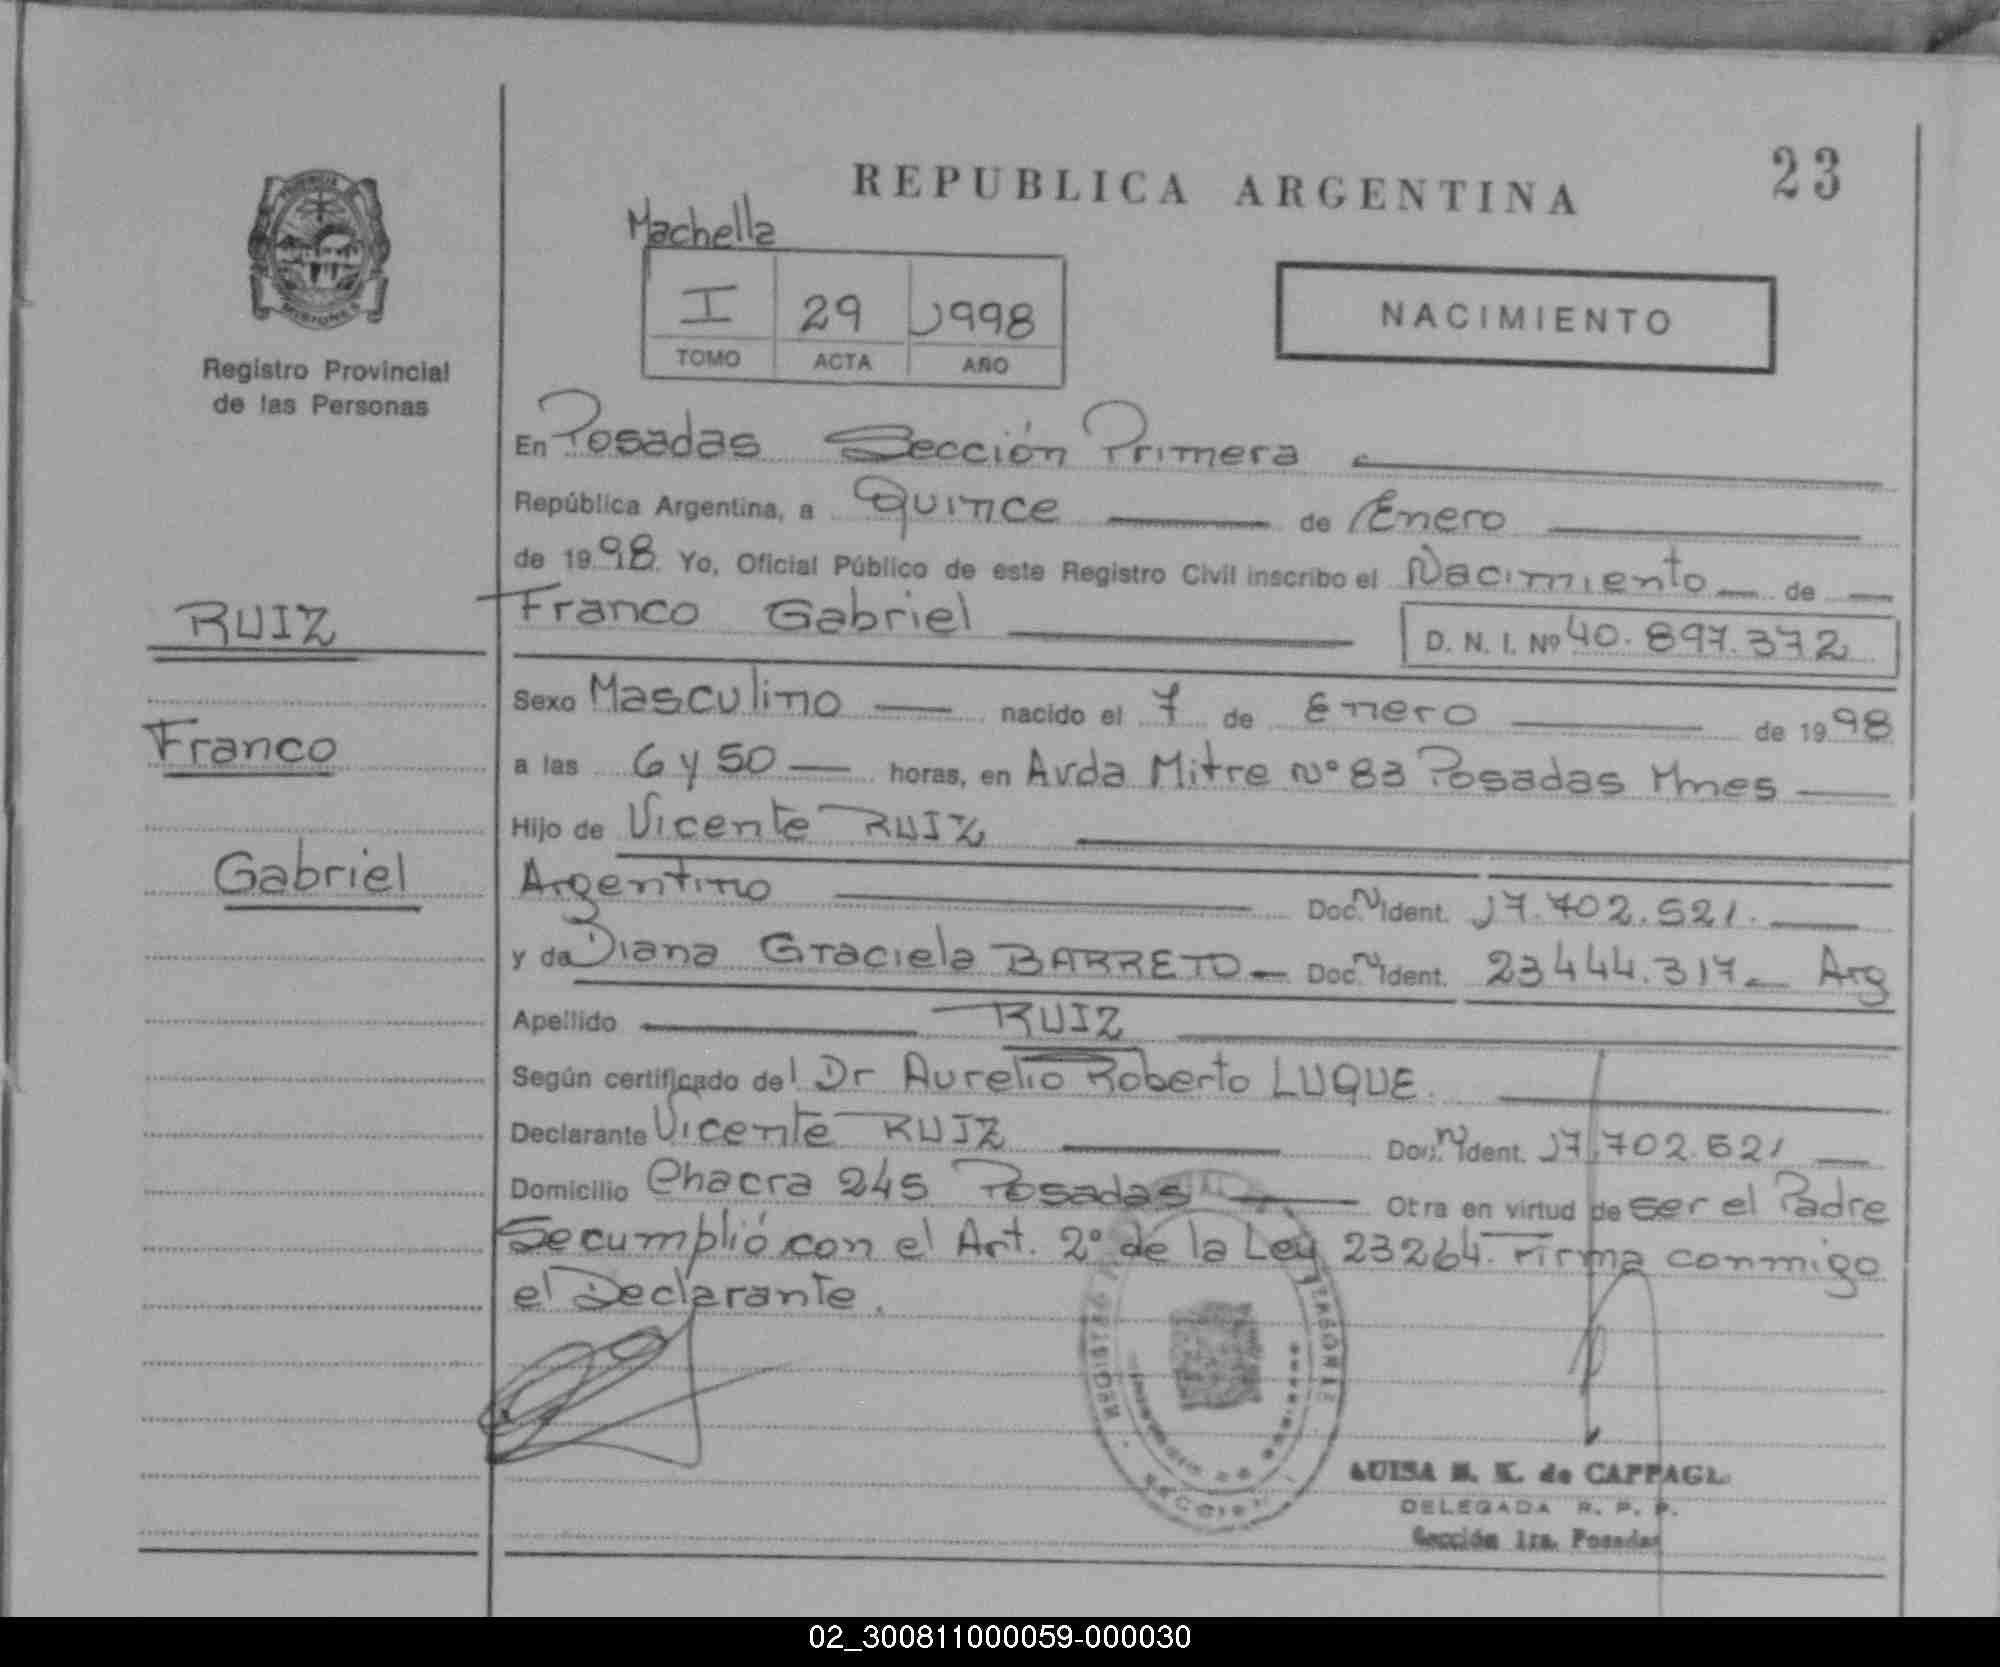 REPUBLICA ARGENTINA
23
Machella
I 29 1998
TOMO ACTA AÑO
NACIMIENTO
MISIONES
Registro Provincial
de las Personas
RUIZ
Franco
Gabriel
En Posadas Sección Primera
República Argentina, a Quince de Enero
de 1998 Yo, Oficial Público de este Registro Civil inscribo el Nacimiento de
Franco Gabriel D. N. I. Nº 40.897.372
Sexo Masculino nacido el 7 de Enero de 1998
a las 6 y 50 horas, en Avda Mitre Nº 83 Posadas Mnes
Hijo de Vicente RUIZ
Argentino Doc. N Ident. 17.702.521.
y de Diana Graciela BARRETO Doc. N Ident. 23444.317 Arg
Apellido RUIZ
Según certificado del Dr Aurelio Roberto LUQUE.
Declarante Vicente RUIZ Doc. N Ident. 17.702.521
Domicilio Chacra 245 Posadas Otra en virtud de ser el Padre
Se cumplió con el Art. 2º de la Ley 23264. Firma conmigo
el Declarante.
SECCION
LUISA de
DELEGADA R. P. P.
Sección 1ra. Posadas
02_300811000059-000030